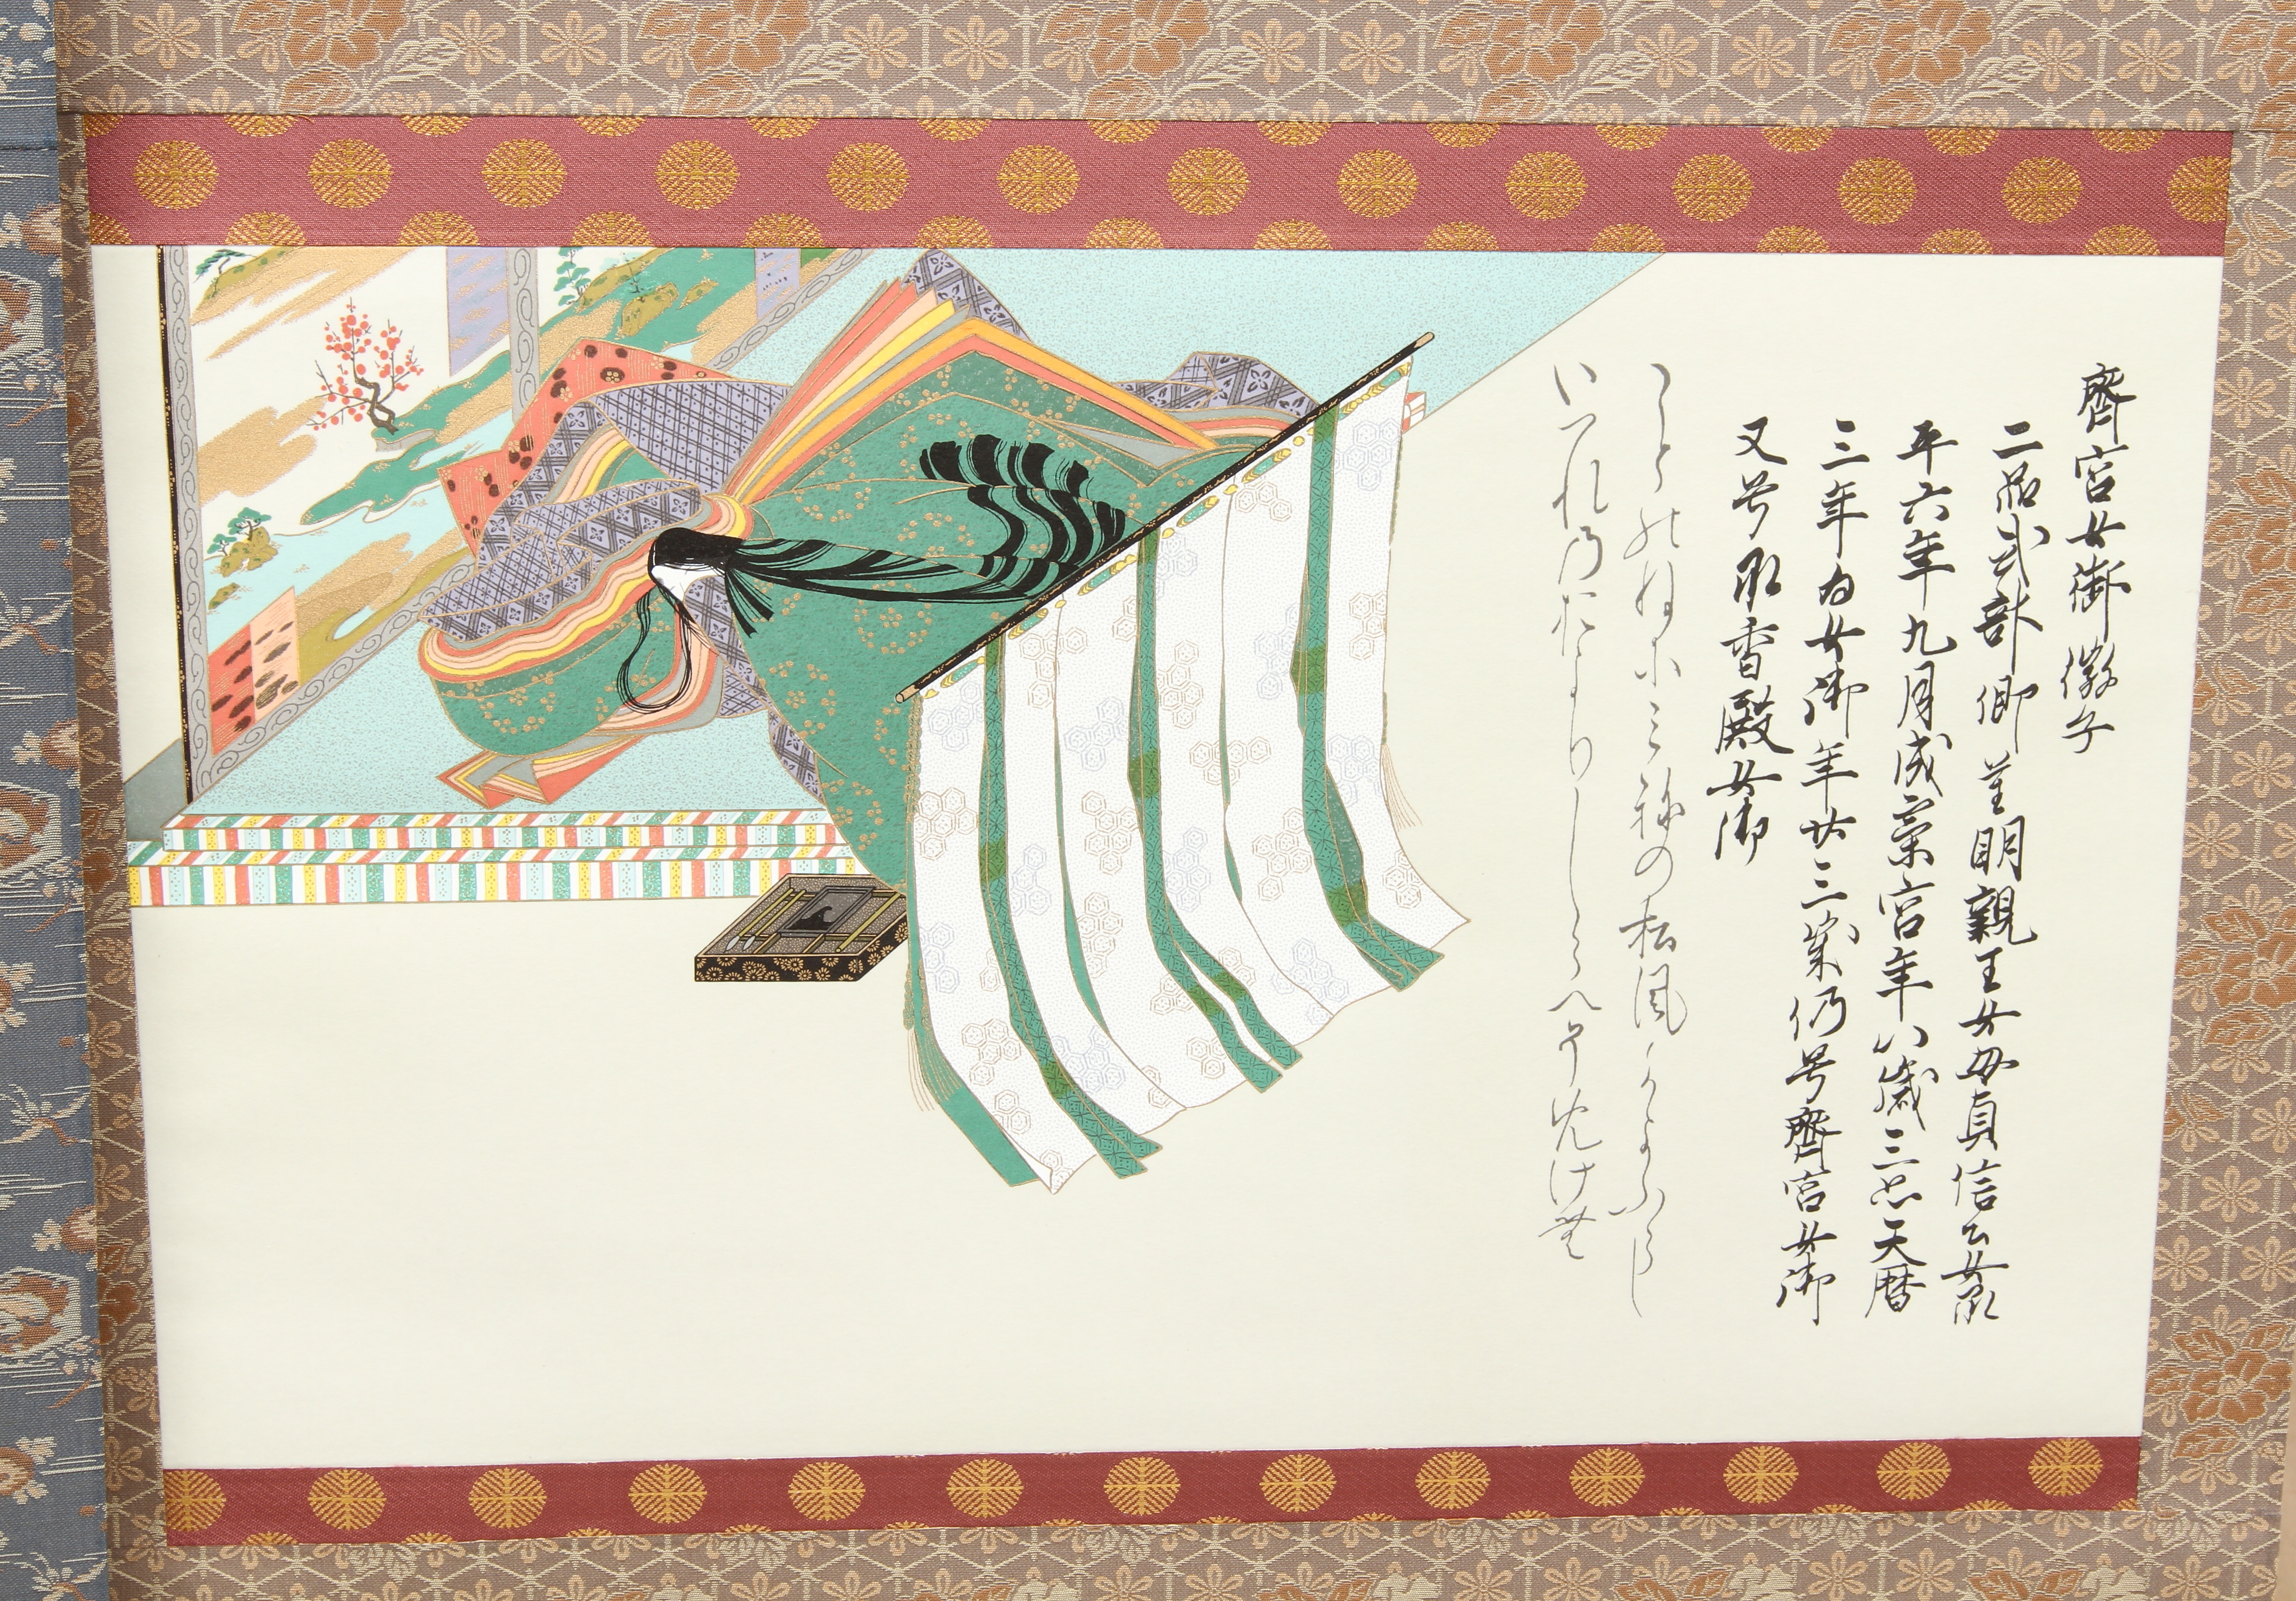 齋宮女御 徽子
二品式部卿重明親王女母貞信公女承
平六年九月為齋宮年八歳云々天暦
三年為女御年廿三歳仍号齋宮女御
又号承香殿女御
ことのねにみねの松風かよふらし
いつれのおよりしらへそめけむ